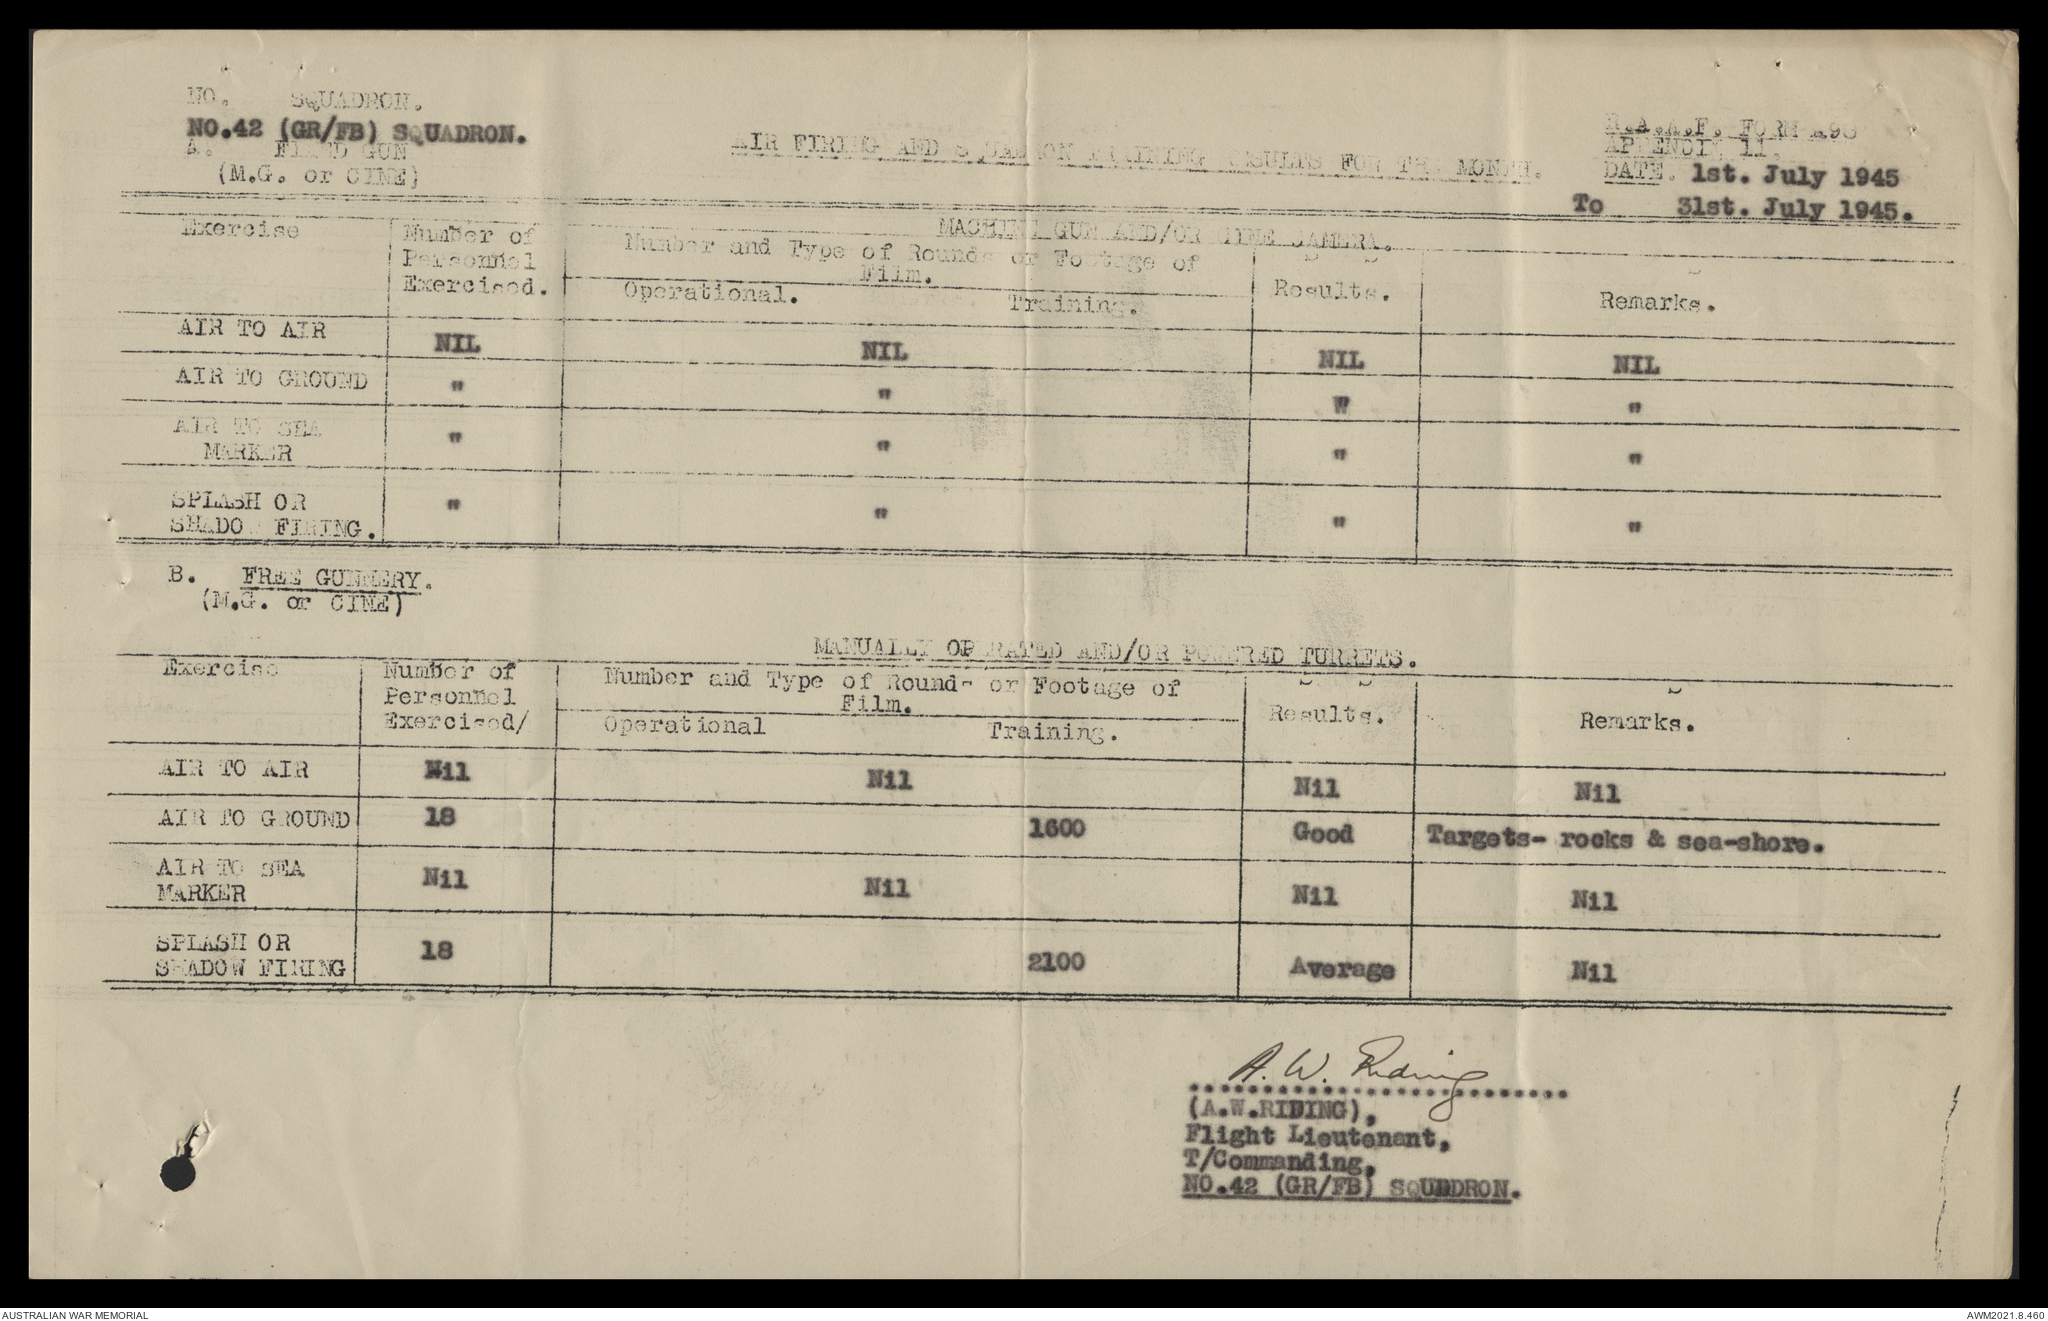 NO. SQUADRON.
NO.42 (GR/FB) SQUADRON.
A. FIXED GUN
(M.G. or CINE)
AIR FIRING AND SQUADRON TRAINING RESULTS FOR THE MONTH.
R.A.A.F. FORM A98
APPENDIX 11.
DATE. 1st. July 1945
To 31st. July 1945.
MACHINE GUN AND/OR CINE CAMERA.
Exercise Number of Personnel Exercised. Number and Type of Rounds or Footage of Film. Results. Remarks.
Operational. Training.
AIR TO AIR NIL NIL NIL NIL
AIR TO GROUND " " " "
AIR TO SEA MARKER " " " "
SPLASH OR SHADOW FIRING. " " " "
B. FREE GUNNERY.
(M.G. or CINE)
MANUALLY OPERATED AND/OR POWERED TURRETS.
Exercise Number of Personnel Exercised/ Number and Type of Rounds or Footage of Film. Results. Remarks.
Operational Training.
AIR TO AIR Nil Nil Nil Nil
AIR TO GROUND 18 1600 Good Targets- rocks & sea-shore.
AIR TO SEA MARKER Nil Nil Nil Nil
SPLASH OR SHADOW FIRING 18 2100 Average Nil
A. W. Riding
(A.W.RIDING),
Flight Lieutenant,
T/Commanding,
NO.42 (GR/FB) SQUDDRON.
AUSTRALIAN WAR MEMORIAL
AWM2021.8.460